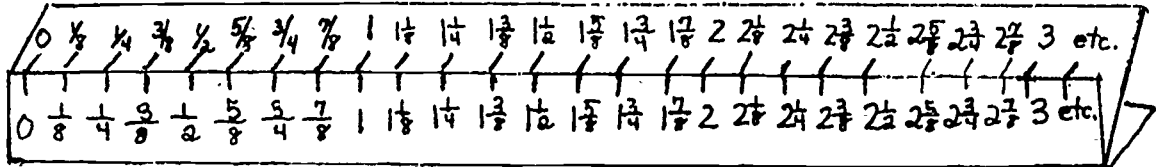 0 1/8 1/4 3/8 1/2 5/8 3/4 7/8 1 1 1/8 1 1/4 1 3/8 1 1/2 1 5/8 1 3/4 1 7/8 2 2 1/8 2 1/4 2 3/8 2 1/2 2 5/8 2 3/4 2 7/8 3 etc.
0 1/8 1/4 3/8 1/2 5/8 3/4 7/8 1 1 1/8 1 1/4 1 3/8 1 1/2 1 5/8 1 3/4 1 7/8 2 2 1/8 2 1/4 2 3/8 2 1/2 2 5/8 2 3/4 2 7/8 3 etc.